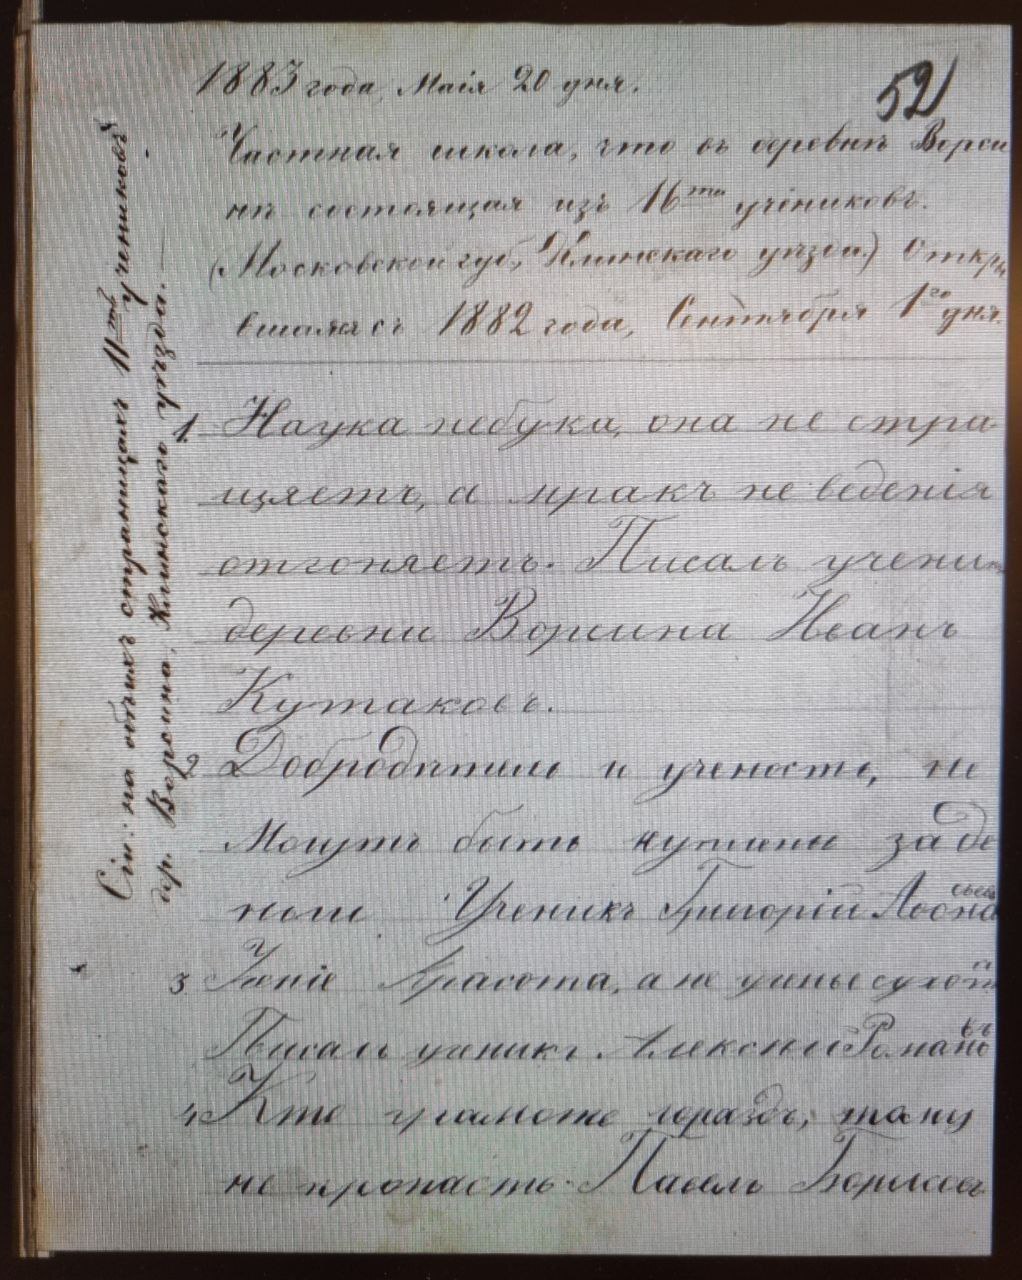 52
1883 года, Маія 20 дня.
Частная школа, что въ деревнѣ Ворси
нѣ состоящая изъ 16ти учениковъ.
(Московской губ, Клинскаго уѣзда.) Откры
вшаяся съ 1882 года, Сентября 1го дня.
1. Наука небука, она не стра
щаетъ, а мракъ не веденія
отгоняетъ. Писалъ учени
деревни Ворсина Иванъ
Кутаковъ.
2 Добродѣтель и ученость, не
могутъ быть куплены за де
ньги Ученикъ Григорій
3. Ученикъ Алексѣй Романовъ
4. Кто грамоте гораздъ, тому
не пропасть. Павелъ Борисовъ
Сіи: на обѣихъ страницахъ 11ть учениковъ
дер. Ворсина, Клинского уѣзда.